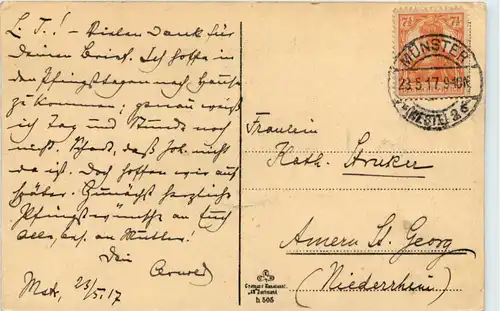 L. T.! - Vielen Dank für
Deinen Brief. Ich hoffe in
den Pfingsttagen nach Hause
zu kommen; genau weiß
ich Tag und Stunde noch
nicht. Schade, daß Joh. nicht
da ist. Doch hoffen wir auf
später. Zunächst herzliche
Pfingstwünsche an Euch
alle, bes. an Mutter!
Dein
Mstr, 23/5. 17
7½ 7½
MÜNSTER
23.5.17. 9-10V.
*(WESTF.) 2 s
Fräulein
Kath. Struker
Amern St. Georg
(Niederrhein)
h 505